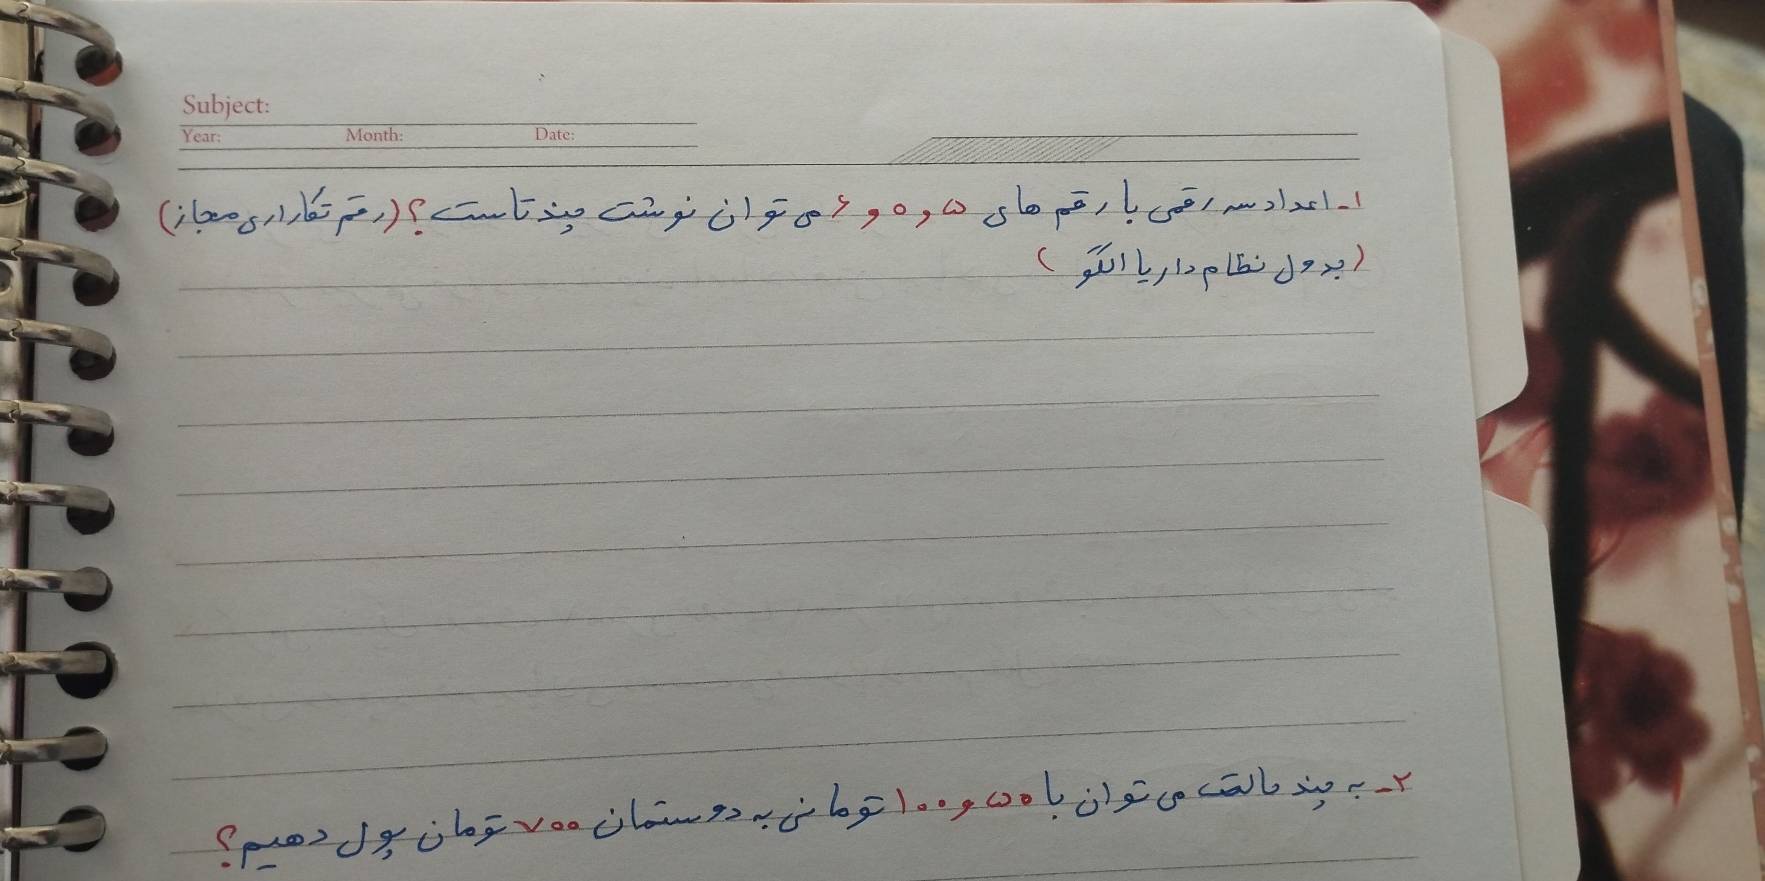 Subject:
Year: Month: Date:
۱- اعداد سه رقمی با رقم های ۵ و ۰ و ۶ می توان نوشت چند تاست؟ (رقم تکراری مجاز)
(جدول نظام دار یا الگو)
۲- به چند حالت می توان با ۵۰ و ۱۰۰ تومانی به دوستمان ۷۰۰ تومان پول دهیم؟